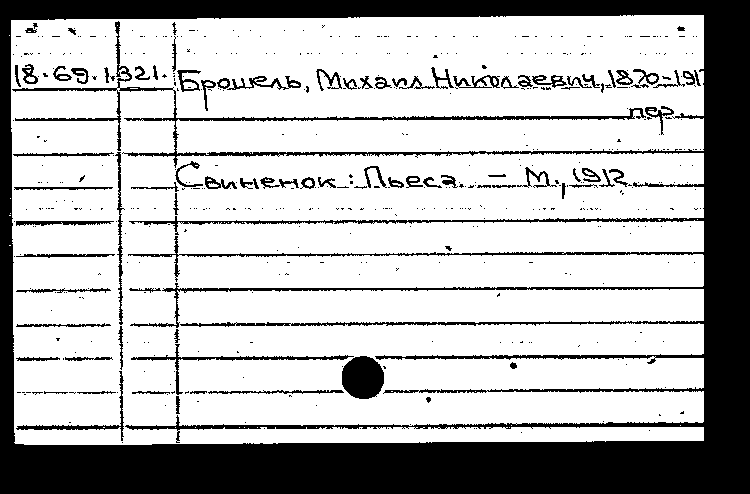 18.69.1.321. Брошель, Михаил Николаевич, 1870-191
пер.
Свиненок: Пьеса. – М., 1912